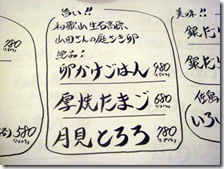 旨い!!
和歌山生石高原、
山田さんの庭さき卵
絶品!
卵かけごはん 480
厚焼たまご 680
月見とろろ 780
780
580
美味!!
銀だ
銀だ
いろ